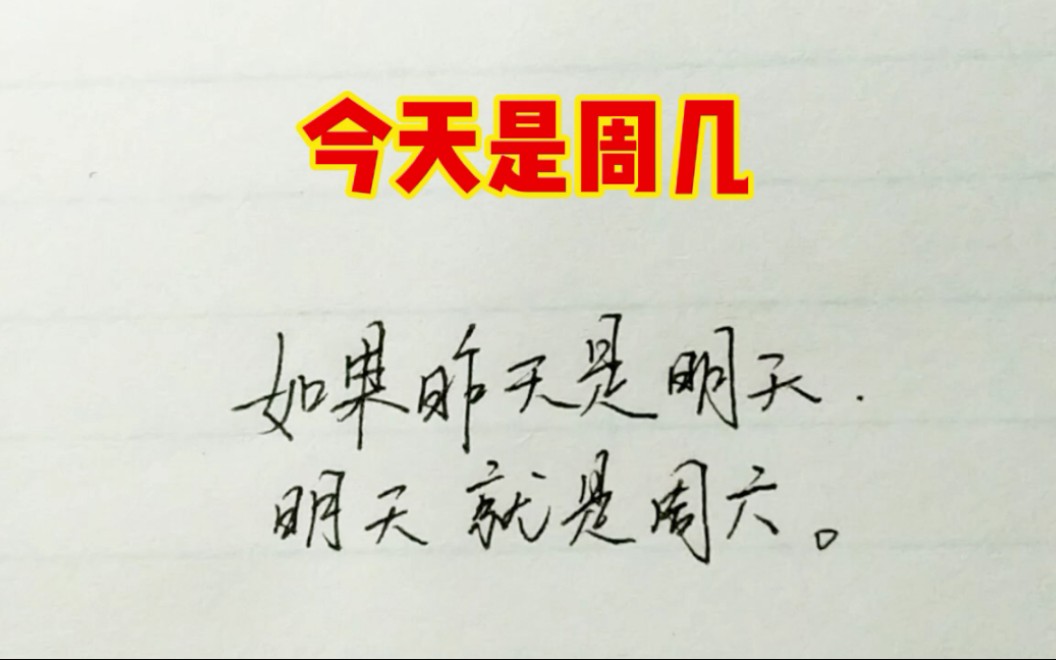 今天是周几
如果昨天是明天.
明天就是周六。